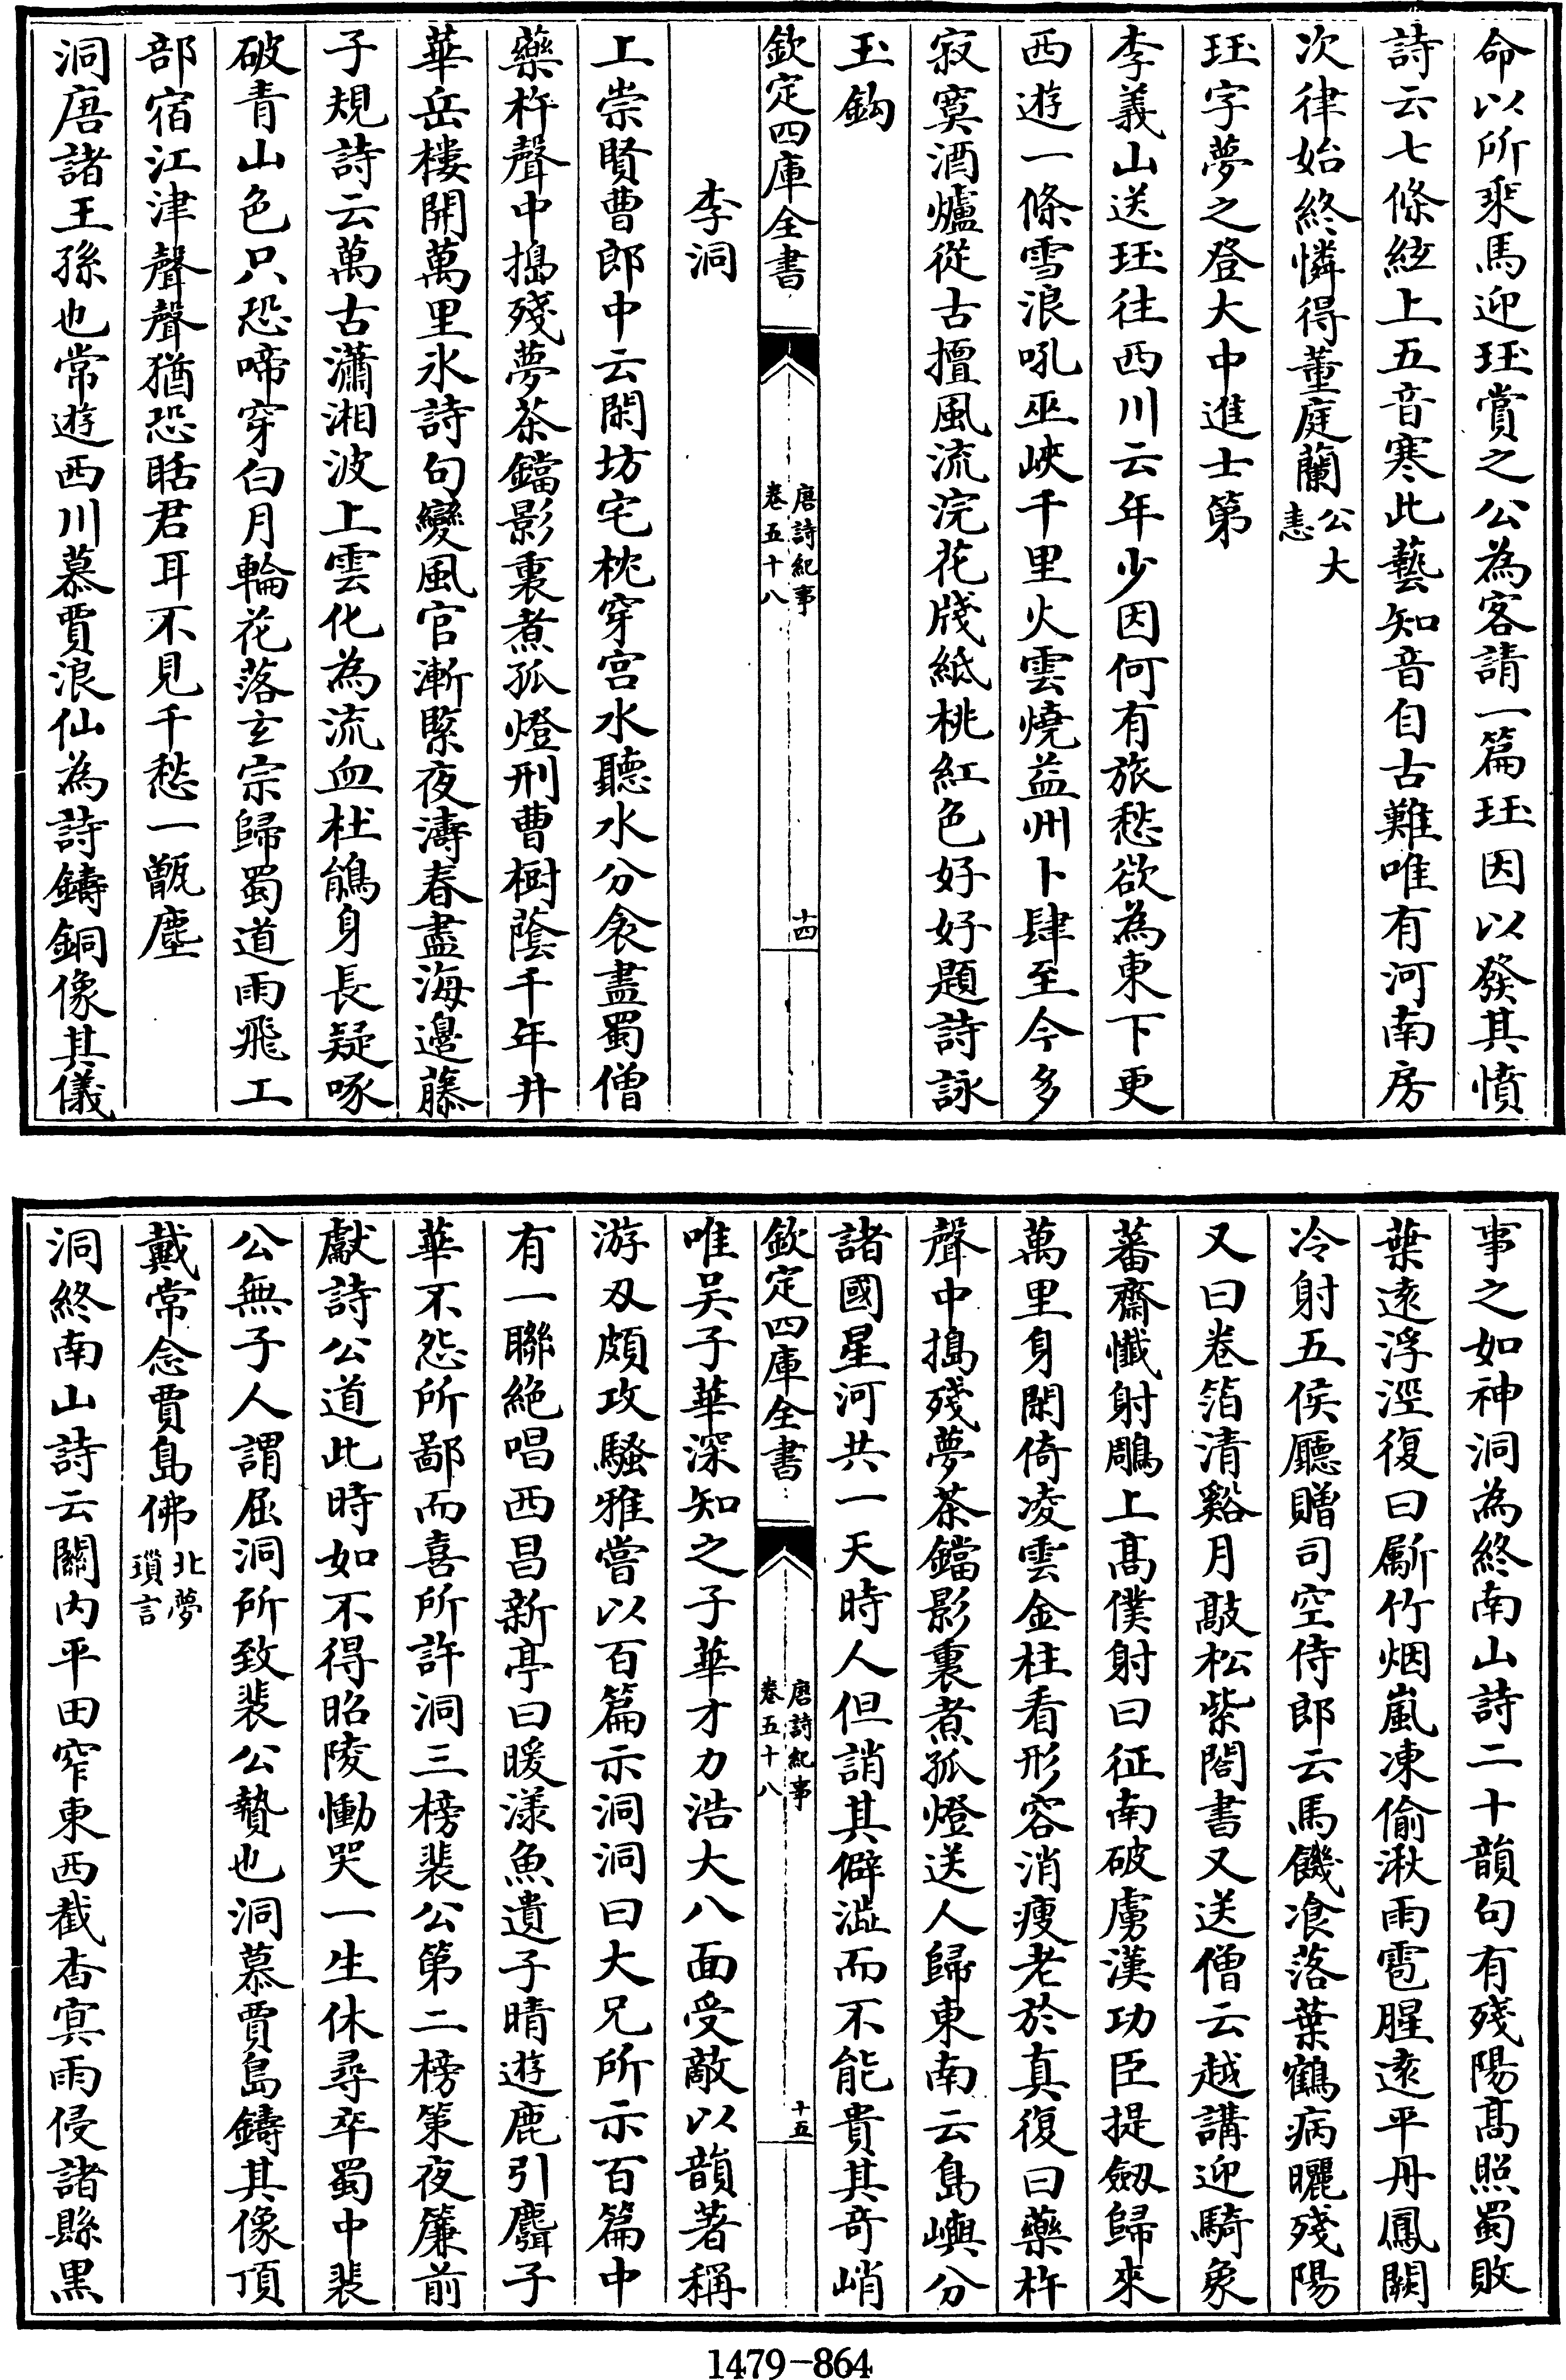 命以所乘馬迎珏賞之公為客請一篇珏因以發其憤
詩云七條絃上五音寒此藝知音自古難唯有河南房
次律始終憐得董庭蘭公大恚
珏字夢之登大中進士第
李義山送珏往西川云年少因何有旅愁欲為東下更
西遊一條雪浪吼巫峽千里火雲燒益州卜肆至今多
寂寞酒爐從古擅風流浣花牋紙桃紅色好好題詩詠
玉鈎
欽定四庫全書
唐詩紀事
卷五十八
十四
李洞
上崇賢曹郎中云閑坊宅枕穿宮水聽水分衾盡蜀僧
藥杵聲中搗殘夢茶鐺影裏煮孤燈刑曹樹蔭千年井
華岳樓開萬里氷詩句變風官漸緊夜濤春盡海邊藤
子規詩云萬古瀟湘波上雲化為流血杜鵑身長疑啄
破青山色只恐啼穿白月輪花落玄宗歸蜀道雨飛工
部宿江津聲聲猶恐聒君耳不見千愁一甑塵
洞唐諸王孫也常遊西川慕賈浪仙為詩鑄銅像其儀
事之如神洞為終南山詩二十韻句有殘陽髙照蜀敗
葉遠浮涇復曰斸竹烟嵐凍偷湫雨雹腥遠平丹鳳闕
冷射五侯廳贈司空侍郎云馬饑飡落葉鶴病曬殘陽
又曰卷箔清谿月敲松紫閣書又送僧云越講迎騎象
蕃齋懺射鵰上髙僕射曰征南破虜漢功臣提劔歸來
萬里身閑倚凌雲金柱看形容消瘦老於真復曰藥杵
聲中搗殘夢茶鐺影裏煮孤燈送人歸東南云島嶼分
諸國星河共一天時人但誚其僻澁而不能貴其奇峭
欽定四庫全書
唐詩紀事
卷五十八
十五
唯吳子華深知之子華才力浩大八面受敵以韻著稱
游刄頗攻騷雅嘗以百篇示洞洞曰大兄所示百篇中
有一聯絶唱西昌新亭曰暖漾魚遺子晴遊鹿引麛子
華不怨所鄙而喜所許洞三榜裴公第二榜策夜簾前
獻詩公道此時如不得昭陵慟哭一生休尋卒蜀中裴
公無子人謂屈洞所致裴公贄也洞慕賈島鑄其像頂
戴常念賈島佛北夢瑣言
洞終南山詩云關內平田窄東西截杳㝠雨侵諸縣黒
1479-864